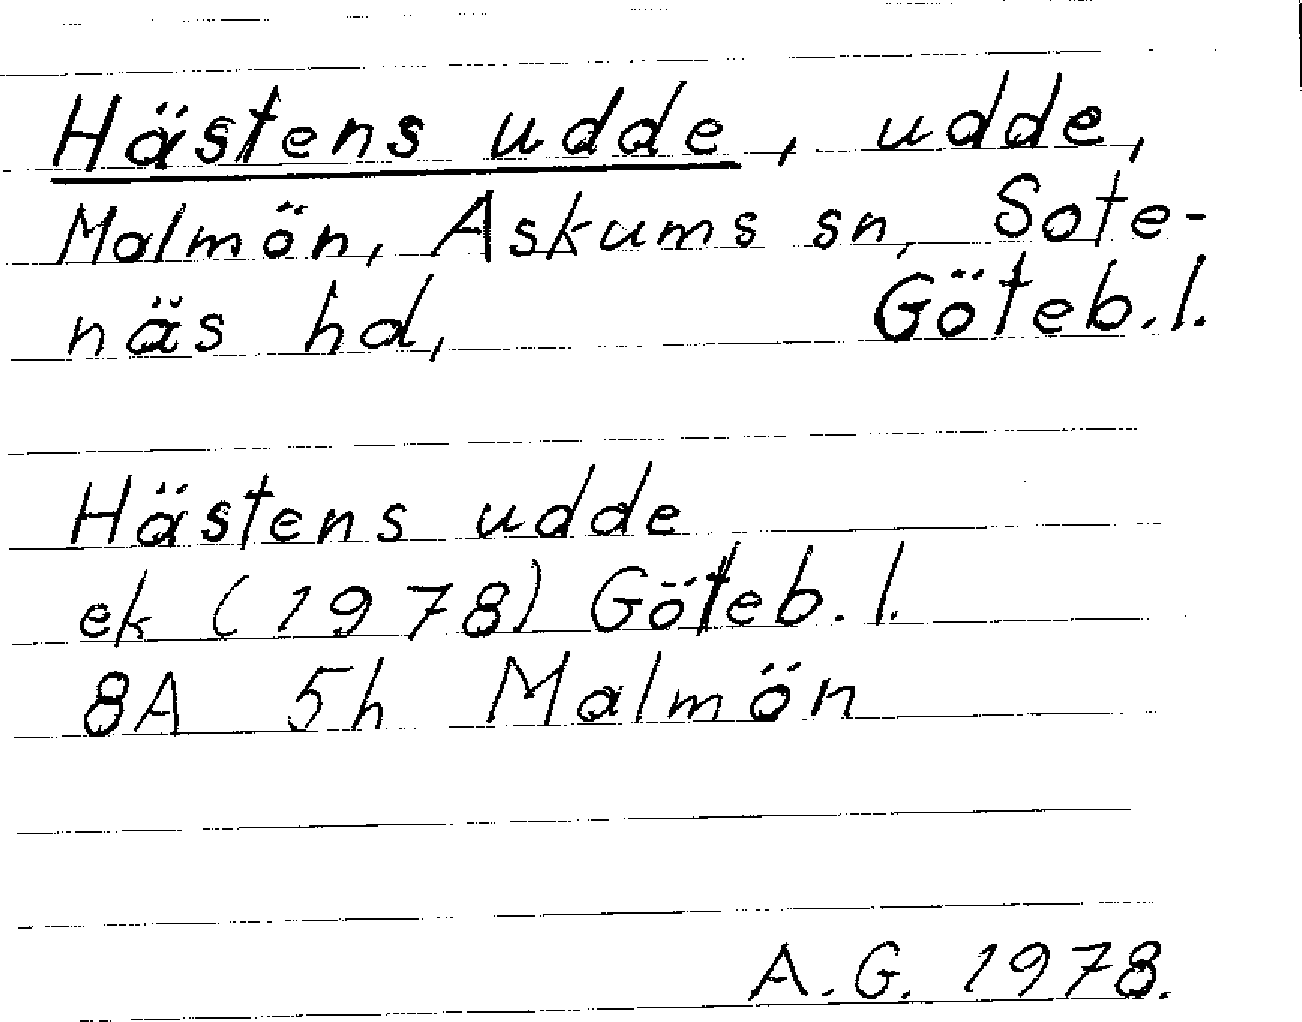 Hästens udde, udde,
Malmön, Askums sn, Sote-
näs hd, Göteb.l.
Hästens udde
ek (1978) Göteb.l.
8A 5h Malmön
A.G. 1978.